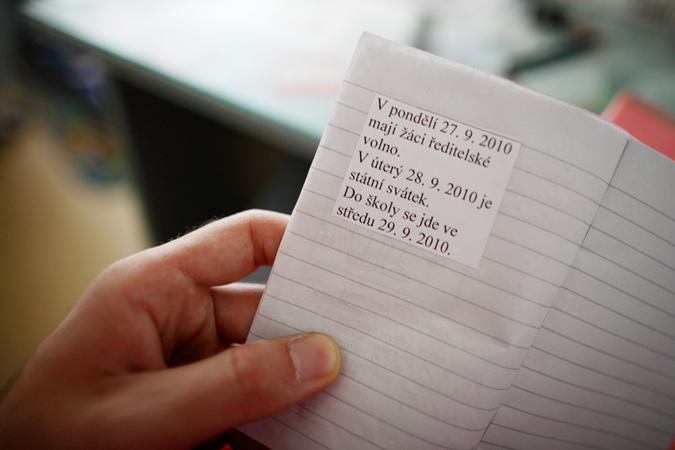 V pondělí 27. 9. 2010
mají žáci ředitelské
volno.
V úterý 28. 9. 2010 je
státní svátek.
Do školy se jde ve
středu 29. 9. 2010.